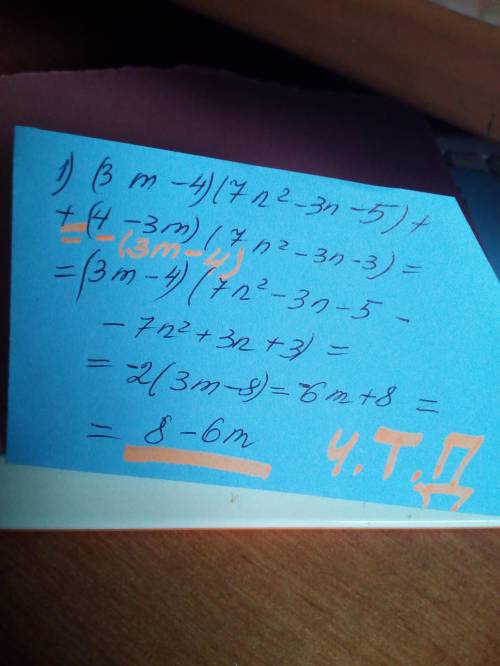 1) (3m-4)(7n²-3n-5)+
+(4-3m)(7n²-3n-3)=
= -(3m-4)
=(3m-4)(7n²-3n-5-
-7n²+3n+3)=
= -2(3m-8)= -6m+8=
= 8-6m
Ч.Т.Д